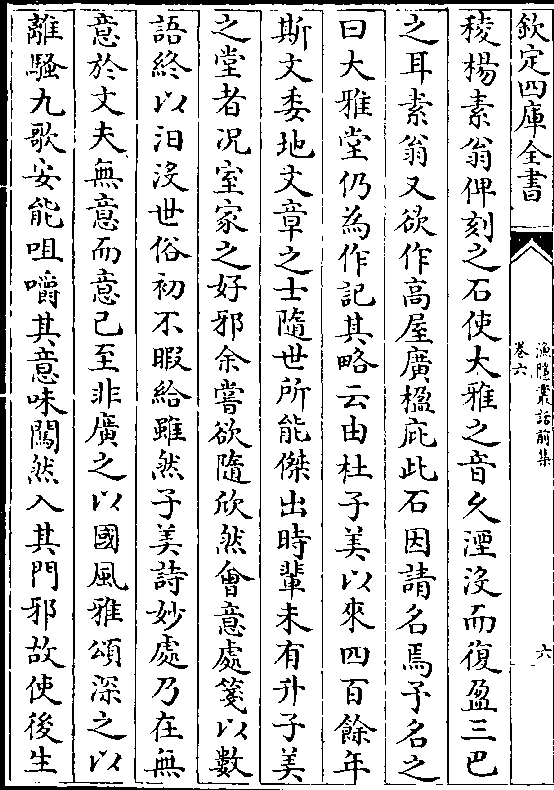 欽定四庫全書
漁隱叢話前集
卷六
六
稜楊素翁俾刻之石使大雅之音久湮沒而復盈三巴
之耳素翁又欲作高屋廣楹庇此石因請名焉予名之
曰大雅堂仍為作記其略云由杜子美以來四百餘年
斯文委地文章之士隨世所能傑出時輩未有升子美
之堂者况室家之好邪余嘗欲隨欣然會意處箋以數
語終以汨沒世俗初不暇給雖然子美詩妙處乃在無
意於文夫無意而意已至非廣之以國風雅頌深之以
離騷九歌安能咀嚼其意味闖然入其門邪故使後生